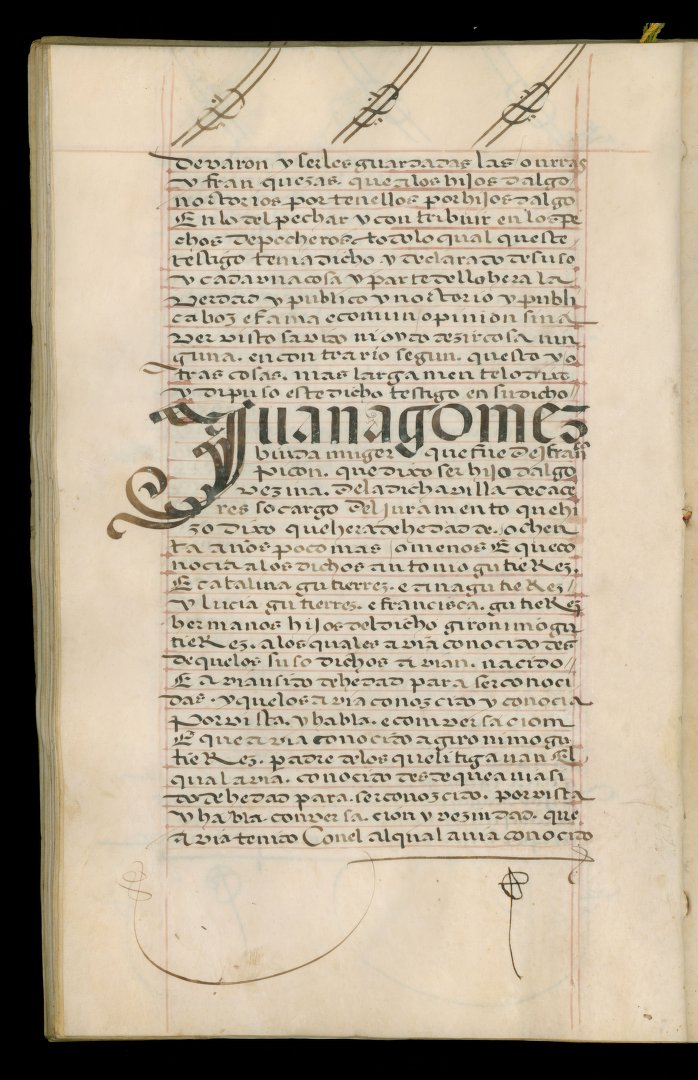 de varon y serles guardadas las onrras
y fran quezas. que a los hijos dalgo
notorios por tenellos por hijos dalgo
En lo del pechar y contribuir en los pe
chos de pecheros. todo lo qual que este
testigo tenia dicho y declarado de suso
y cada vna cosa y parte dello hera la
verdad y publico y notorio y publi
ca boz e fama e comun opinion sin a
ver visto sabido ni oydo dezir cosa nin
guna. en con trario segun. que esto y o
tras cosas. mas larga men te lo dixo
y dipuso este dicho testigo en su dicho
Juana gomez
biuda muger que fue de fran^co
Picon. que dixo ser hijo dalgo
vezina. de la dicha villa de cace
res so cargo del juramento que hi
zo dixo que hera de hedad de. ochen
ta años poco mas o menos E que co
nocia a los dichos antonio gutieRez.
E catalina gutierrez. e ana gutieRez
y lucia gutierrez. e francisca. gutieRez
hermanos hijos del dicho gironimo gu
tieRez. a los quales avia conocido des
de que los suso dichos avian. nacido
E avian sido de hedad para ser conoci
das. y que los avia conozcido y conocia
Por vista. y habla. e com ver sa ciom
E que avia conocido a gironimo gu
tieRez. padre de los que litigavan El
qual avia. conocido desde que avia si
do de hedad para. ser conozcido. por vista
y habla. conversa. cion y vezindad. que
avia tenido Con el al qual avia conocido